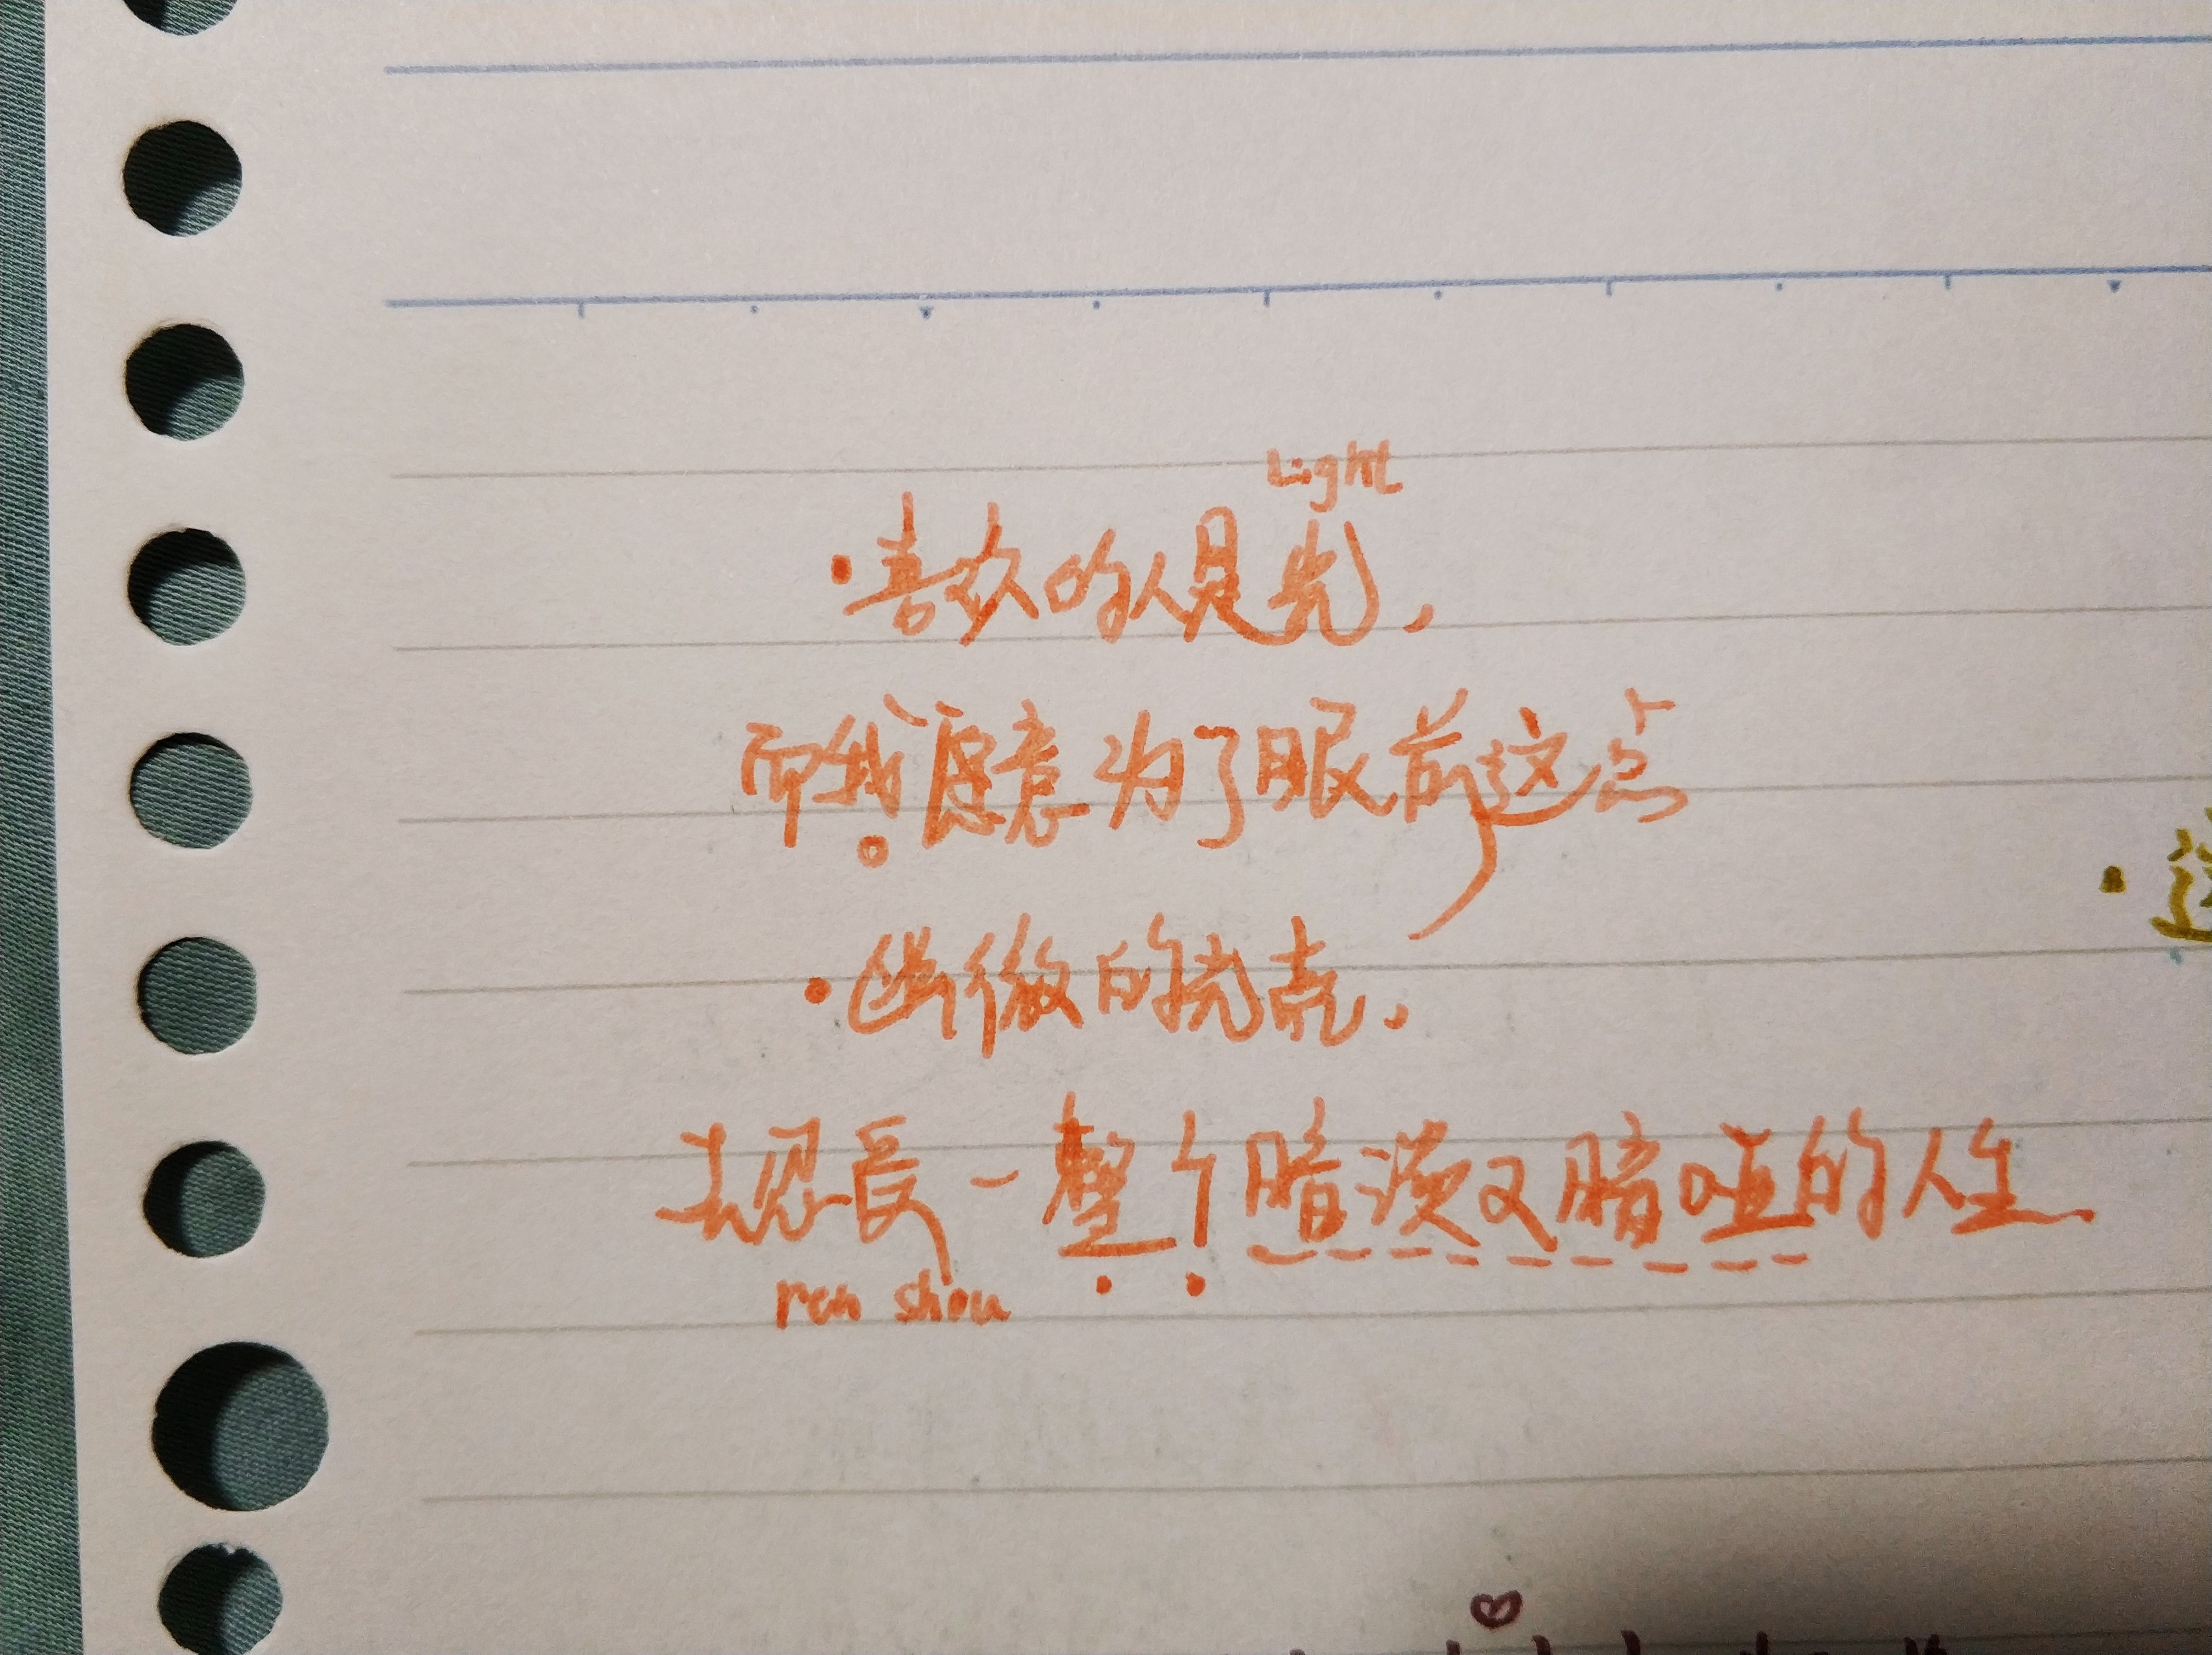 Light
·喜欢的人是光,
而我愿意为了眼前这点
·幽微的光亮,
去忍受一整个暗淡又暗哑的人生.
ren shou